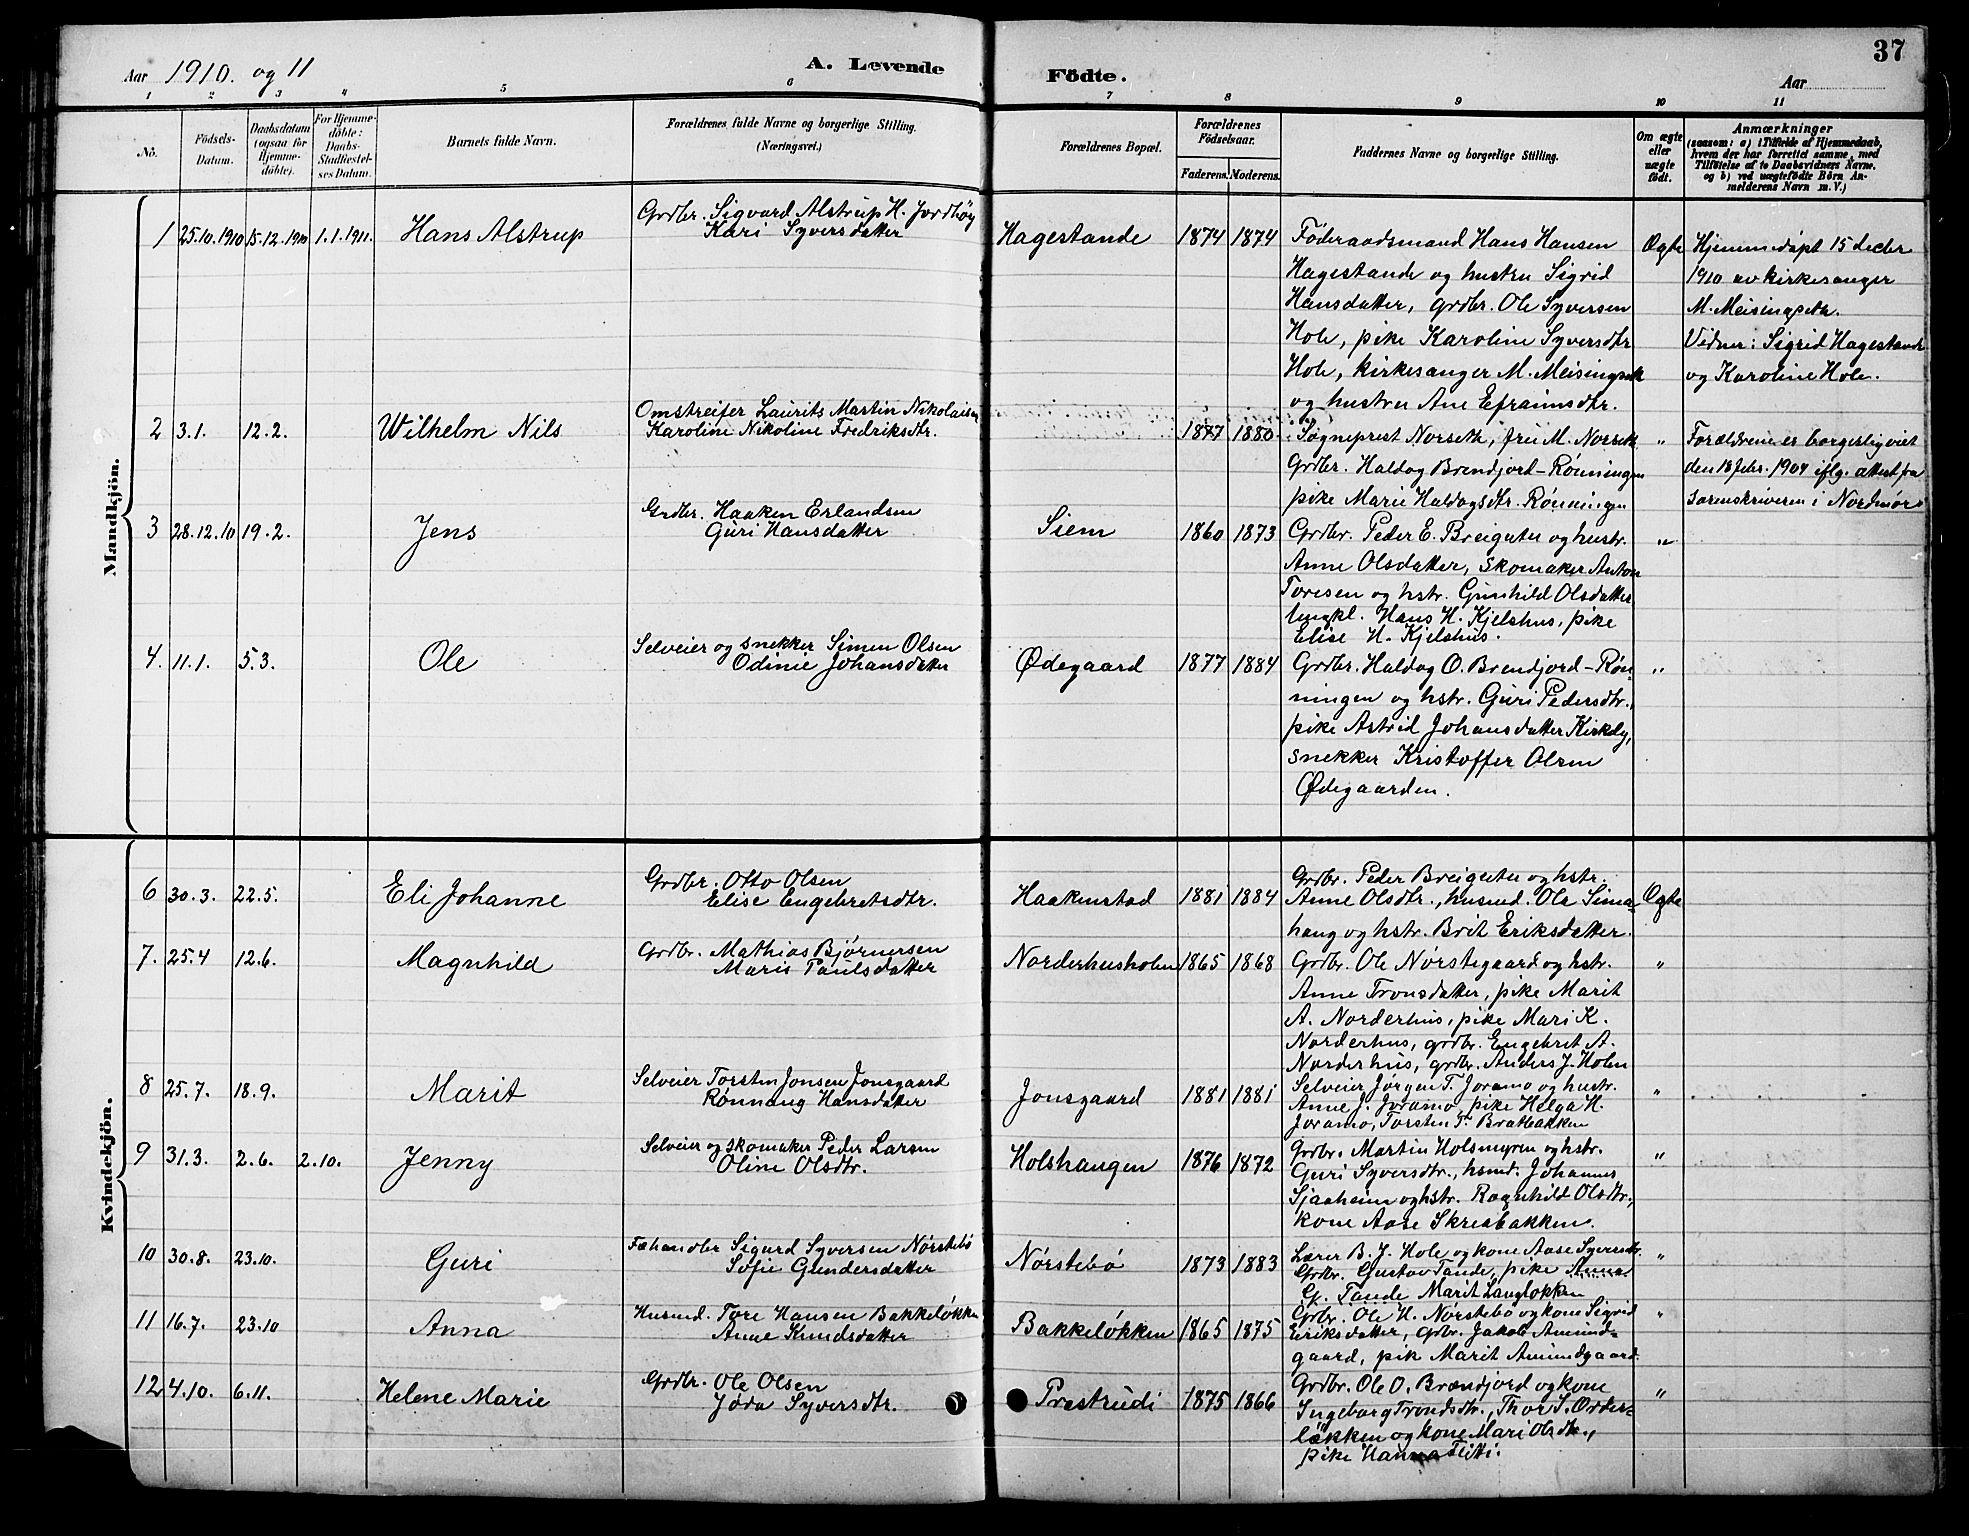 37
Aar 1910. og 11
A. Levende Födte.
Aar
1 2 3 4 5 6 7 8 9 10 11
No.
Födsels-Datum.
Daabsdatum (ogsaa for Hjemme-döbte).
For Hjemme-döbte: Daabs-Stadfæstel-ses Datum.
Barnets fulde Navn.
Forældrenes fulde Navne og borgerlige Stilling. (Næringsvei.)
Forældrenes Bopæl.
Forældrenes Födselsaar.
Faderens. Moderens.
Faddernes Navne og borgerlige Stilling.
Om ægte eller uægte födt.
Anmærkninger
(saasom: a) i Tilfælde af Hjemmedaab,
hvem der har forrettet samme, med
Tilföielse af to Daabsvidners Navne.
og b) ved uægtefödte Börn An-
melderens Navn m. V.)
Mandkjön.
1 25.10.1910 15.12.1910 1.1.1911. Hans Alstrup
Grdbr. Sigvard Alstrup H. Jordhøy
Kari Syversdatter
Hagestande 1874 1874
Föderaadsmand Hans Hansen
Hagestande og hustru Sigrid
Hansdatter, grdbr. Ole Syversen
Hole, pike Karoline Syversdtr
Hole, kirkesanger M. Meisingseth
og hustru Ane Efraimsdtr.
Ægte
Hjemmedöpt 15 decbr
1910 av kirkesanger
M. Meisingseth.
Vidner: Sigrid Hagestande
og Karoline Hole.
2 3.1. 12.2. Wilhelm Nils
Omstreifer Laurits Martin Nikolaisen
Karoline Nikoline Fredriksdtr.
1877 1880.
Sogneprest Norseth, fru M. Norseth
Grdbr. Haldog Brendjord-Rønningen
pike Marie Haldogsdtr. Rønningen
"
Forældrene er borgerlig viet
den 18 febr. 1904 iflg. attest fra
sorenskriveren i Nordmør
3 28.12.10 19.2. Jens
Grdbr. Haaken Erlandsen
Guri Hansdatter
Siem 1860 1873
Grdbr. Peder E. Breiguter og hustr.
Anne Olsdatter, skomaker Anton
Toresen og hstr. Gunhild Olsdatter
Ungkl. Hans H. Kjelshus, pike
Elise H. Kjelshus.
"
4. 11.1. 5.3. Ole
Selveier og snekker Simen Olsen
Odinie Johansdatter
Ødegaard 1877 1884
Grdbr. Haldog O. Brendjord-Røn-
ningen og hstr. Guri Pedersdtr.,
pike Astrid Johansdatter Kirkely,
snekker Kristoffer Olsen
Ødegaarden.
"
Kvindekjön.
6 30.3. 22.5. Eli Johanne
Grdbr. Otto Olsen
Elise Engebretsdtr.
Haakenstad 1881 1884
Grdbr. Peder Breiguter og hstr.
Anne Olsdtr., husmd. Ole Sima-
haug og hstr. Brit Eriksdatter.
Ægte
7. 25.4 12.6. Magnhild
Grdbr. Mathias Bjørnersen
Maris Paulsdatter
Norderhusholen 1865 1868
Grdbr. Ole Nørstegaard og hstr.
Anne Tronsdatter, pike Marit
A. Norderhus, pike Mari K.
Norderhus, grdbr. Engebret A.
Norderhus, grdbr. Anders J. Holen
"
8 25.7. 18.9. Marit
Selveier Torsten Jonsen Jonsgaard
Rønnaug Hansdatter
Jonsgaard 1881 1881
Selveier Jørgen T. Joramo og hustr.
Anne J. Joramo, pike Helga H.
Joramo, Torsten T. Bratbakken
"
9 31.3. 2.6. 2.10. Jenny
Selveier og skomaker Peder Larsen
Oline Olsdtr.
Holshaugen 1876 1872
Grdbr. Martin Holsmyren og hstr.
Guri Syversdtr., hsmd. Johannes
Sjaaheim og hstr. Ragnhild Olsdtr,
kone Aase Skresbakken.
"
10 30.8. 23.10. Guri
Fæhandler Sigurd Syversen Nørstebø
Sofie Gundersdatter
Nørstebø 1873 1883
Lærer B. J. Hole og kone Aase Syversdtr.
Grdbr. Gustav Tande, pike Anna
G. Tande Marit Langlokken
"
11 16.7. 23.10 Anna
Husmd. Tore Hansen Bakkeløkken
Anne Knudsdatter
Bakkeløkken 1865 1875
Grdbr. Ole H. Nørstebø og kone Sigrid
Eriksdatter, Grbr. Jakob Amund-
gaard, pik Marit Amundgaard.
"
12 4.10. 6.11. Helene Marie
Grdbr. Ole Olsen
Jøda Syversdtr.
Prestrudi 1875 1866
Grdbr. Ole O. Brændjord og kone
Ingeborg Trondsdtr., Thor S. Order-
løkken og kone Mari Olsdtr.,
pike Hanna Flitti.
"